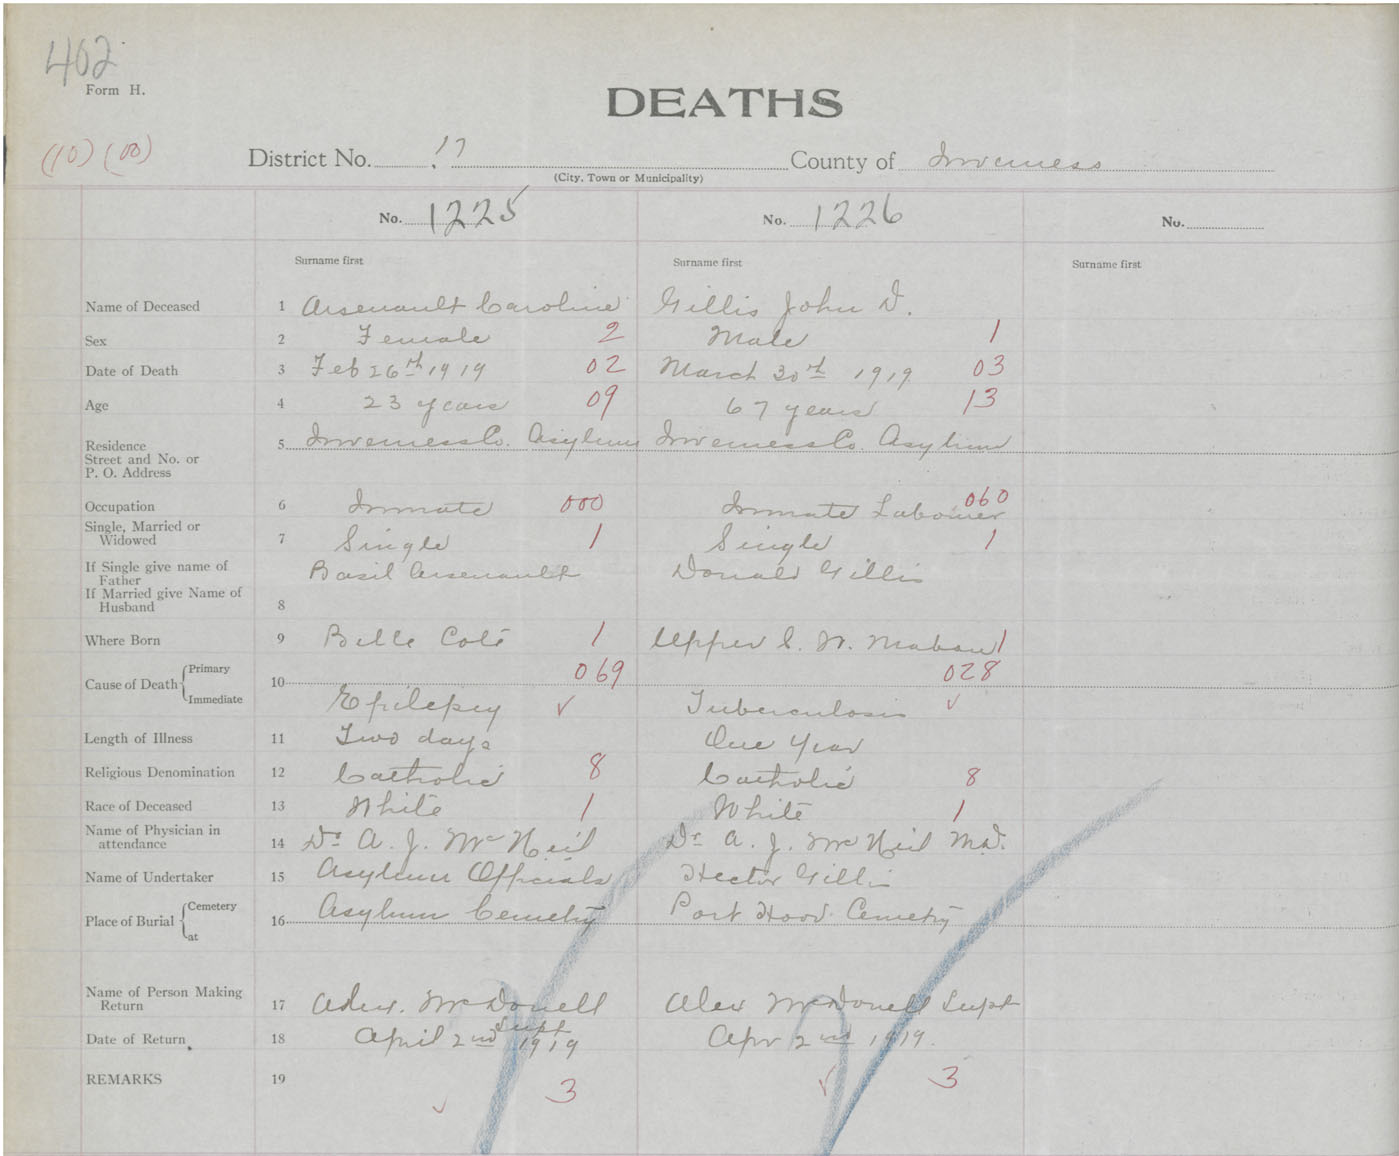 402
Form H.
DEATHS
(10) (00)
District No. 17 County of Inverness
(City, Town or Municipality)
No. 1225 No. 1226 No.
Surname first Surname first Surname first
Name of Deceased 1 Arsenault Caroline Gillis John D.
Sex 2 Female 2 Male 1
Date of Death 3 Feb 26th 1919 02 March 30th 1919 03
Age 4 23 years 09 67 years 13
Residence 5 Inverness Co. Asylum Inverness Co. Asylum
Street and No. or
P. O. Address
Occupation 6 Inmate 000 Inmate Labourer 060
Single, Married or
Widowed 7 Single 1 Single 1
If Single give name of Basil Arsenault Donald Gillis
Father
If Married give Name of
Husband 8
Where Born 9 Belle Coté 1 Upper S. W. Mabou 1
Cause of Death Primary 10 069 028
Immediate Epilepsy ✓ Tuberculosis ✓
Length of Illness 11 Two days One Year
Religious Denomination 12 Catholic 8 Catholic 8
Race of Deceased 13 White 1 White 1
Name of Physician in
attendance 14 Dr A. J. McNeil Dr A. J. McNeil M.D.
Name of Undertaker 15 Asylum Officials Hector Gillis
Place of Burial Cemetery 16 Asylum Cemetry Port Hood Cemetry
at
Name of Person Making
Return 17 Alex. McDonell Supt Alex McDonell Supt
Date of Return 18 April 2nd 1919 Apr 2nd 1919.
REMARKS 19 ✓ 3 ✓ 3